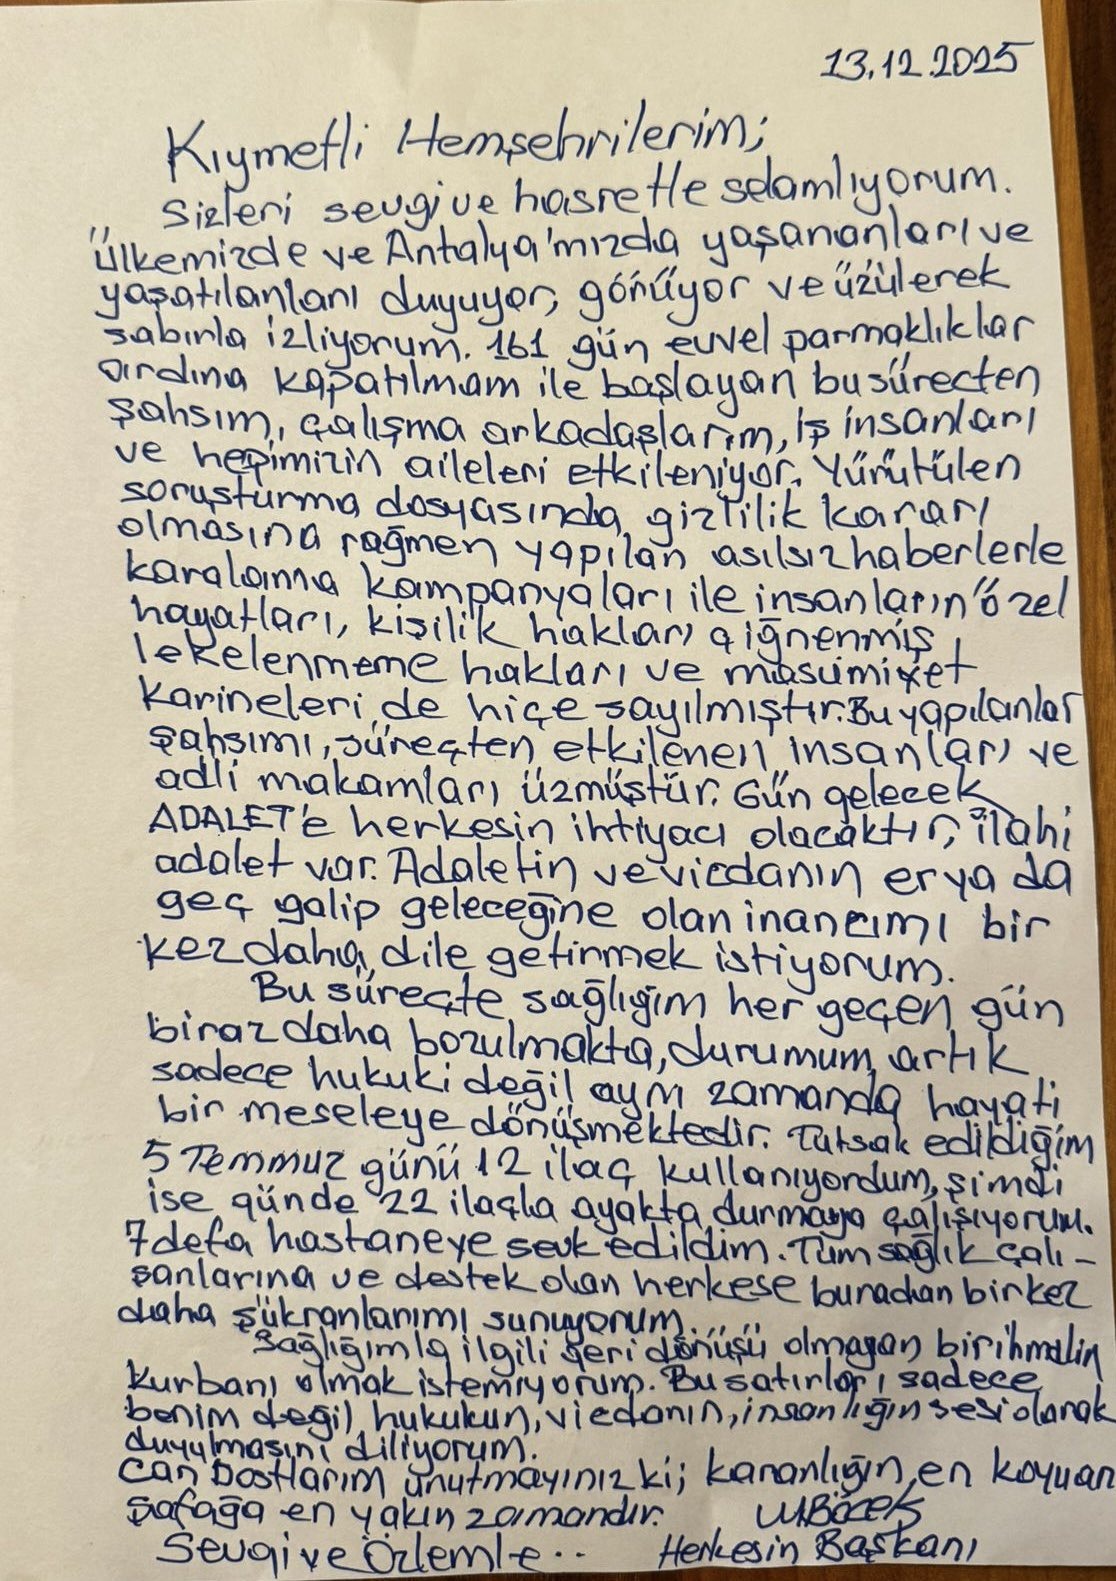 13.12.2025
Kıymetli Hemşehrilerim;
Sizleri sevgi ve hasretle selamlıyorum.
Ülkemizde ve Antalya'mızda yaşananları ve
yaşatılanları duyuyor, görüyor ve üzülerek
sabırla izliyorum. 161 gün evvel parmaklıklar
ardına kapatılmam ile başlayan bu süreçten
şahsım, çalışma arkadaşlarım, iş insanları
ve hepimizin aileleri etkileniyor. Yürütülen
soruşturma dosyasında, gizlilik kararı
olmasına rağmen yapılan asılsız haberlerle
karalama kampanyaları ile insanların özel
hayatları, kişilik hakları çiğnenmiş,
lekelenmeme hakları ve masumiyet
karineleri de hiçe sayılmıştır. Bu yapılanlar
şahsımı, süreçten etkilenen insanları ve
adli makamları üzmüştür. Gün gelecek
ADALET'e herkesin ihtiyacı olacaktır, ilahi
adalet var. Adaletin ve vicdanın er ya da
geç galip geleceğine olan inancımı bir
kez daha dile getirmek istiyorum.
Bu süreçte sağlığım her geçen gün
biraz daha bozulmakta, durumum artık
sadece hukuki değil aynı zamanda hayati
bir meseleye dönüşmektedir. Tutsak edildiğim
5 Temmuz günü 12 ilaç kullanıyordum, şimdi
ise günde 22 ilaçla ayakta durmaya çalışıyorum.
7 defa hastaneye sevk edildim. Tüm sağlık çalı-
şanlarına ve destek olan herkese buradan bir kez
daha şükranlarımı sunuyorum.
Sağlığımla ilgili geri dönüşü olmayan bir ihmalin
kurbanı olmak istemiyorum. Bu satırları sadece
benim değil, hukukun, vicdanın, insanlığın sesi olarak
duyulmasını diliyorum.
Can Dostlarım unutmayınız ki; karanlığın en koyu an
şafağa en yakın zamandır. M.Böcek
Sevgi ve Özlemle.. Herkesin Başkanı